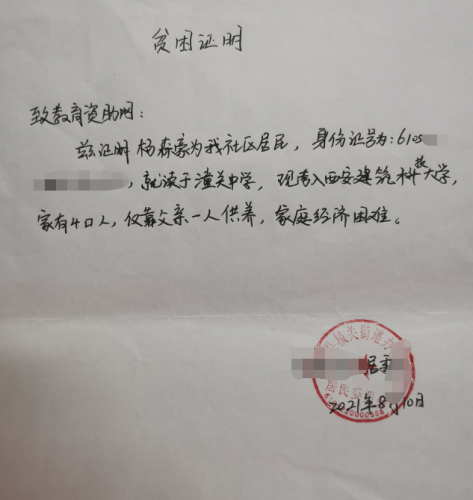 贫困证明
致教育资助网：
兹证明杨森豪为我社区居民，身份证号为：6105
，就读于潼关中学，现考入西安建筑科技大学，
家有4口人，仅靠父亲一人供养，家庭经济困难。
城关街道办
居委
居民
2021年8月10日